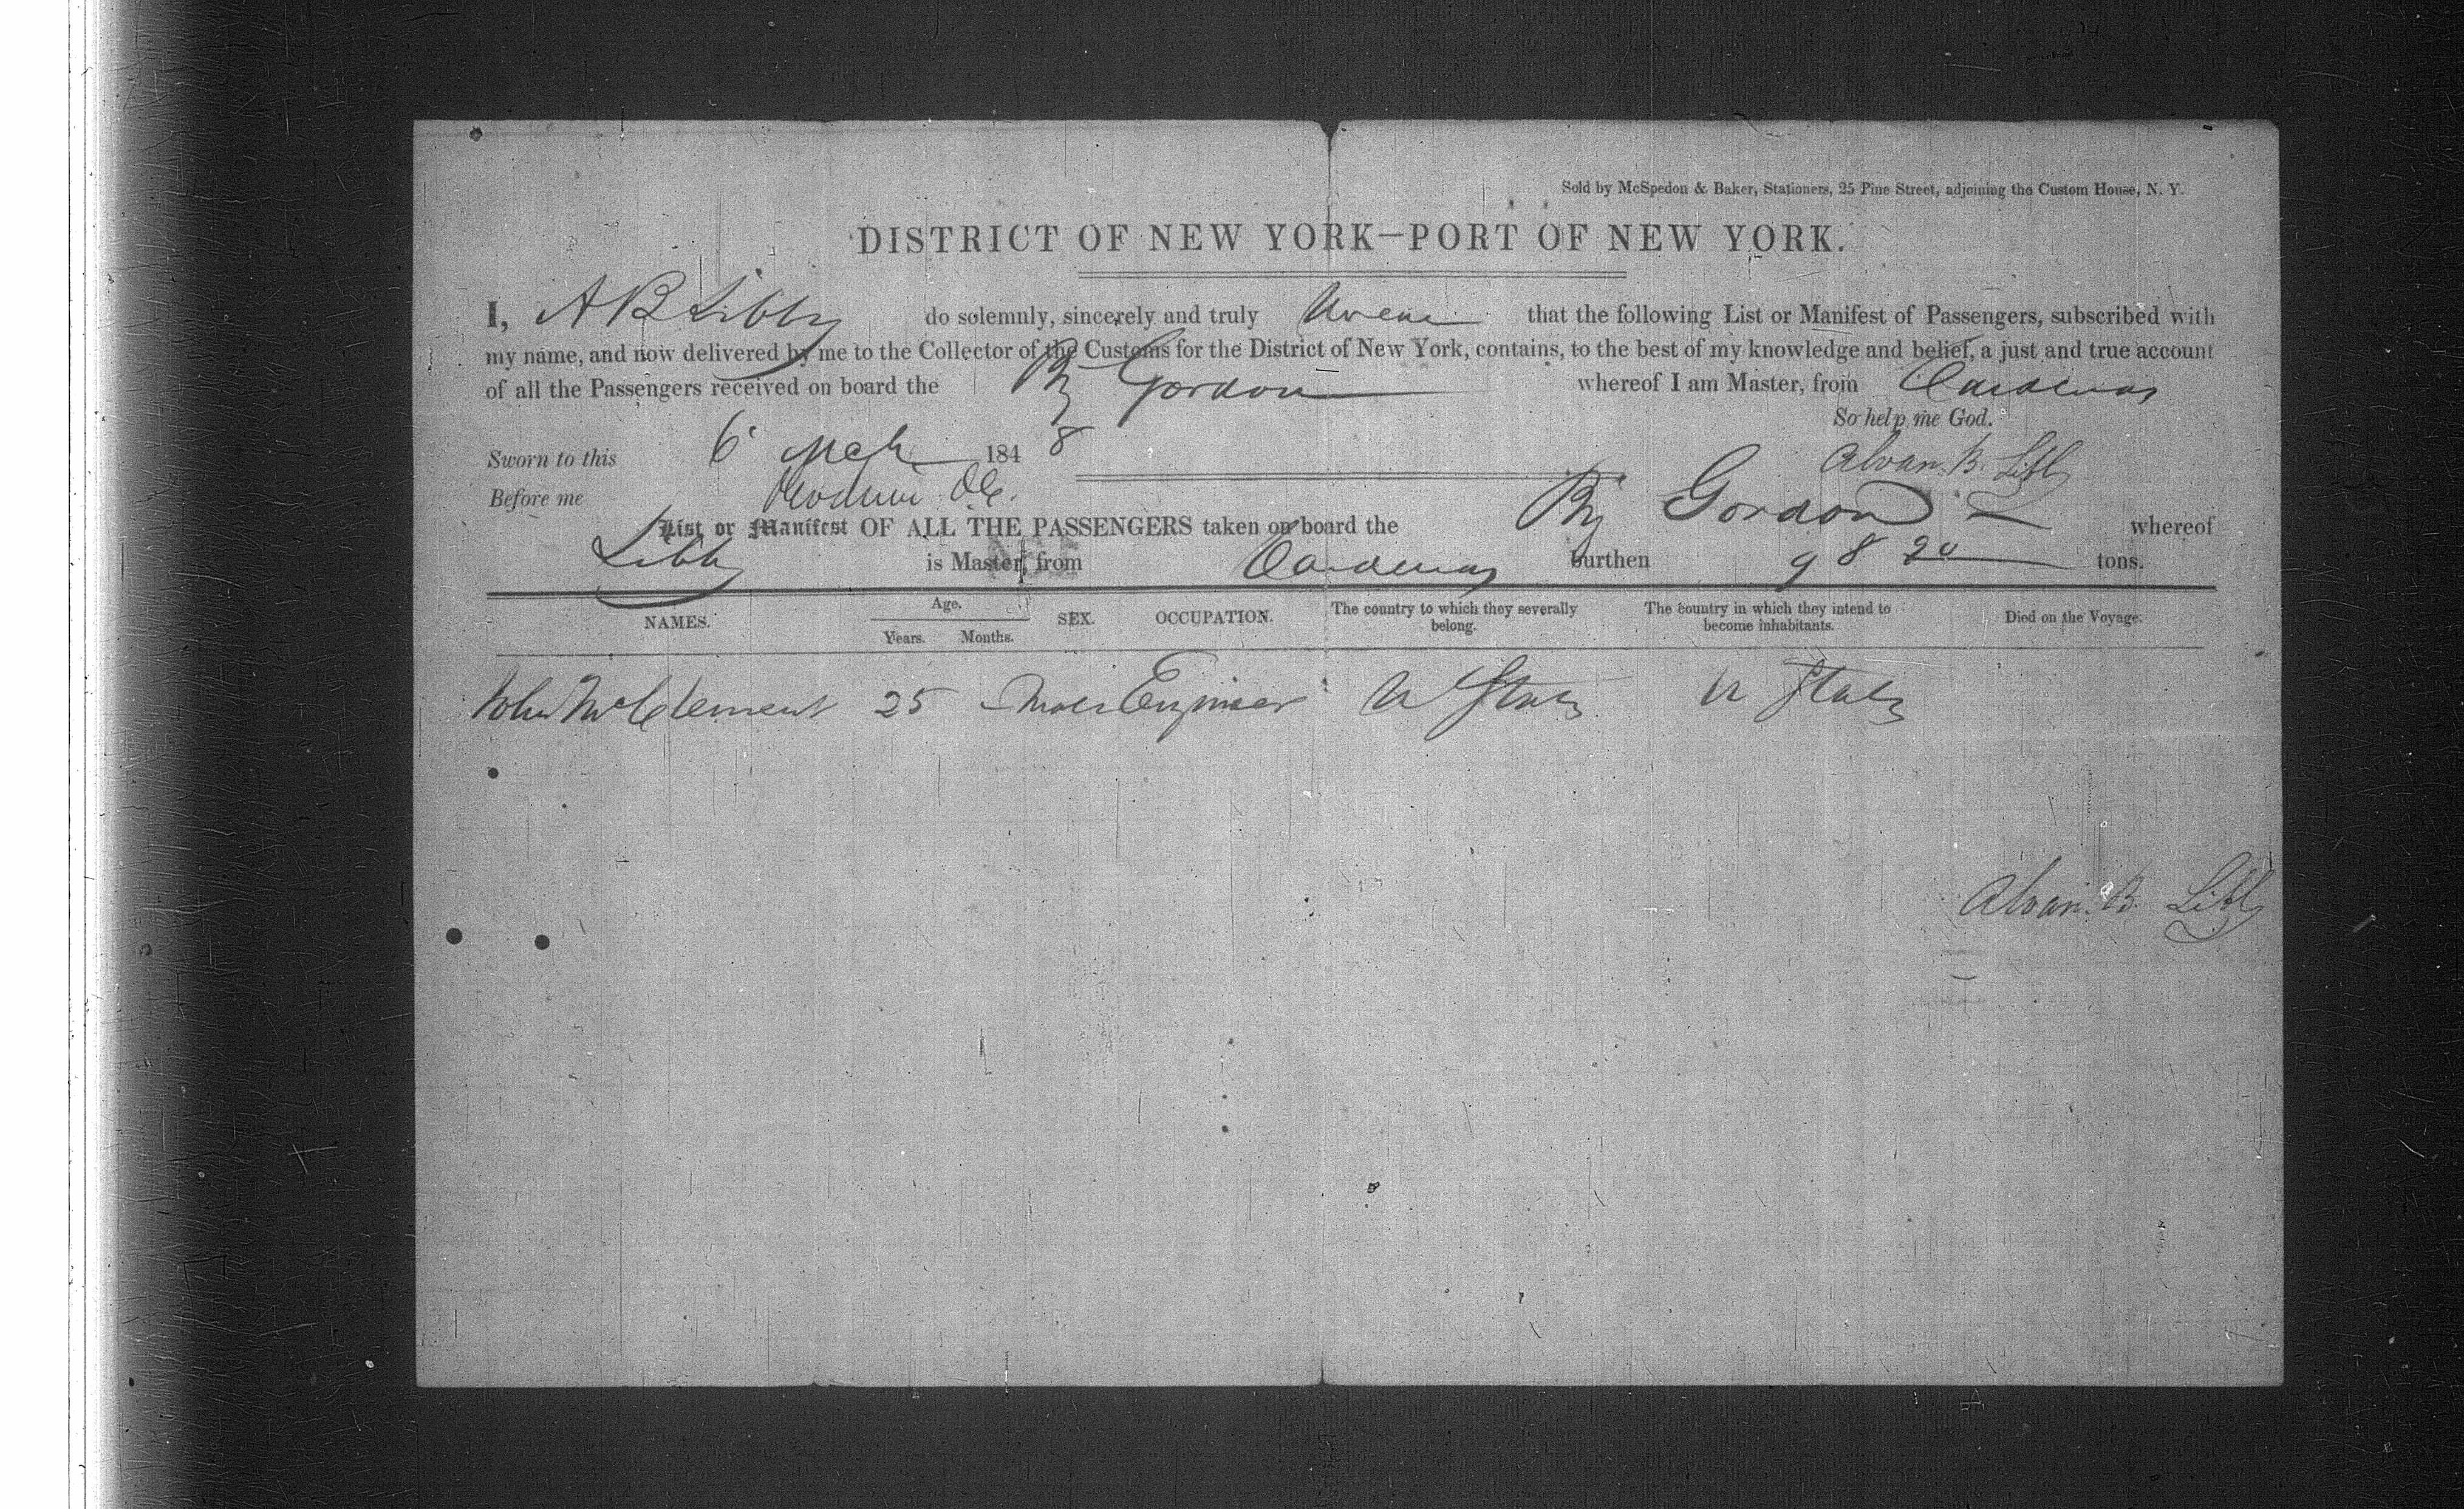 Sold by McSpedon & Baker, Stationers, 25 Pine Street, adjoining the Custom House, N. Y.
DISTRICT OF NEW YORK—PORT OF NEW YORK.
I, A B Libby do solemnly, sincerely and truly that the following List or Manifest of Passengers, subscribed with
my name, and now delivered by me to the Collector of the Customs for the District of New York, contains, to the best of my knowledge and belief, a just and true account
of all the Passengers received on board the Brig Gordon whereof I am Master, from Cardenas
So help me God.
Sworn to this 6 Mch 1848
Alvan. B. Libby
Before me
List or Manifest OF ALL THE PASSENGERS taken on board the Brig Gordon whereof
Libby is Master, from Cardenas burthen 98 tons.
NAMES. Age. Years. Months. SEX. OCCUPATION. The country to which they severally belong. The country in which they intend to become inhabitants. Died on the Voyage.
John McClement 25 Male Engineer U States U States
Alvan. B. Libby